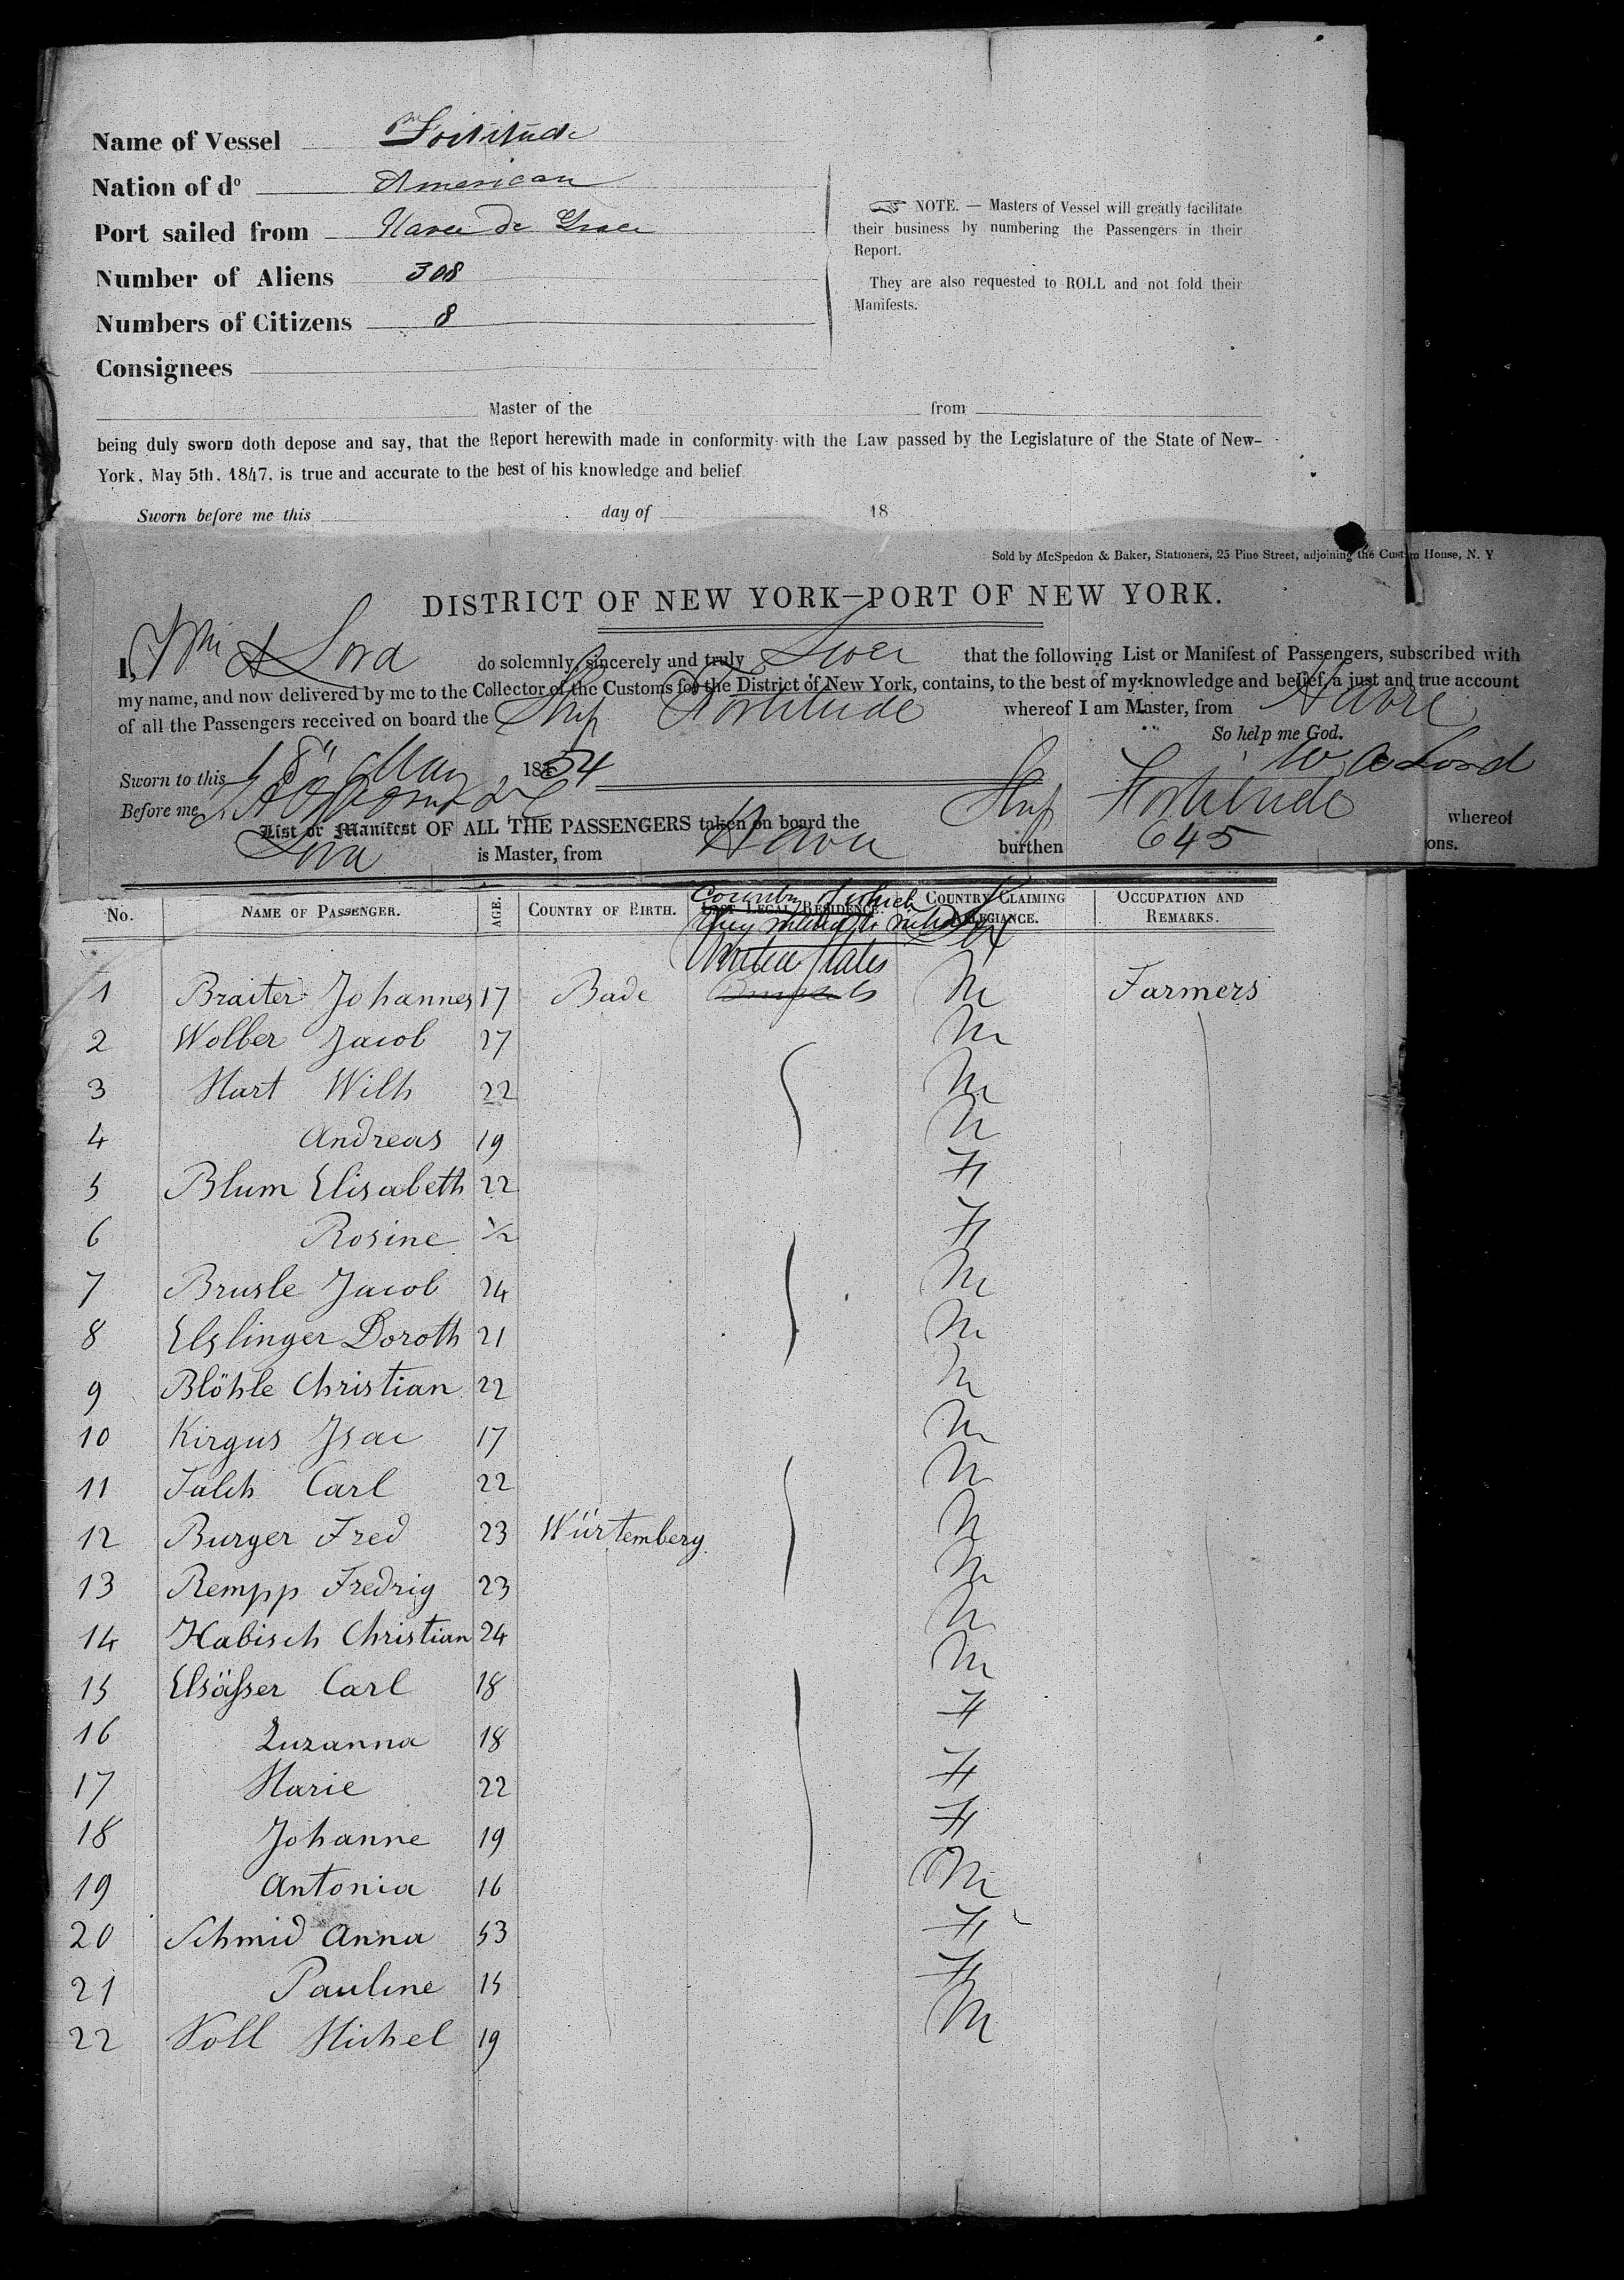 Name of Vessel Fortitude
Nation of dº American
Port sailed from Havre de Grace
Number of Aliens 308
Numbers of Citizens 8
Consignees
NOTE. — Masters of Vessel will greatly facilitate
their business by numbering the Passengers in their
Report.
They are also requested to ROLL and not fold their
Manifests.
Master of the from
being duly sworn doth depose and say, that the Report herewith made in conformity with the Law passed by the Legislature of the State of New-
York, May 5th, 1847, is true and accurate to the best of his knowledge and belief
Sworn before me this day of 18
Sold by McSpedon & Baker, Stationers, 25 Pine Street, adjoining the Custom House, N. Y
DISTRICT OF NEW YORK—PORT OF NEW YORK.
I, Wm A Lord do solemnly, sincerely and truly Swear that the following List or Manifest of Passengers, subscribed with
my name, and now delivered by me to the Collector of the Customs for the District of New York, contains, to the best of my knowledge and belief, a just and true account
of all the Passengers received on board the Ship Fortitude whereof I am Master, from Havre
So help me God.
Sworn to this 18" May 1854 W A Lord
Before me
List or Manifest OF ALL THE PASSENGERS taken on board the Ship Fortitude whereof
Lord is Master, from Havre burthen 645 ons.
No. NAME OF PASSENGER. AGE. COUNTRY OF BIRTH. LAST LEGAL RESIDENCE. COUNTRY CLAIMING ALLEGIANCE. OCCUPATION AND REMARKS.
Country of which
they intend to inhabit Sex
United States
1 Braiter Johannes 17 Bade M Farmers
2 Wolber Jacob 27 M
3 Hart Wilh 22 M
4 Andreas 19 M
5 Blum Elisabeth 22 F
6 Rosine ½ F
7 Brusle Jacob 24 M
8 Elslinger Doroth 21 M
9 Blöhle Christian 22 M
10 Kirgus Isac 17 M
11 Falch Carl 22 M
12 Burger Fred 23 Würtemberg M
13 Rempp Fredrig 23 M
14 Habisch Christian 24 M
15 Elsäſser Carl 18 M
16 Luzanna 18 F
17 Marie 22 F
18 Johanne 19 F
19 Antonia 16 M
20 Schmid Anna 53 F
21 Pauline 15 F
22 Noll Michel 19 M